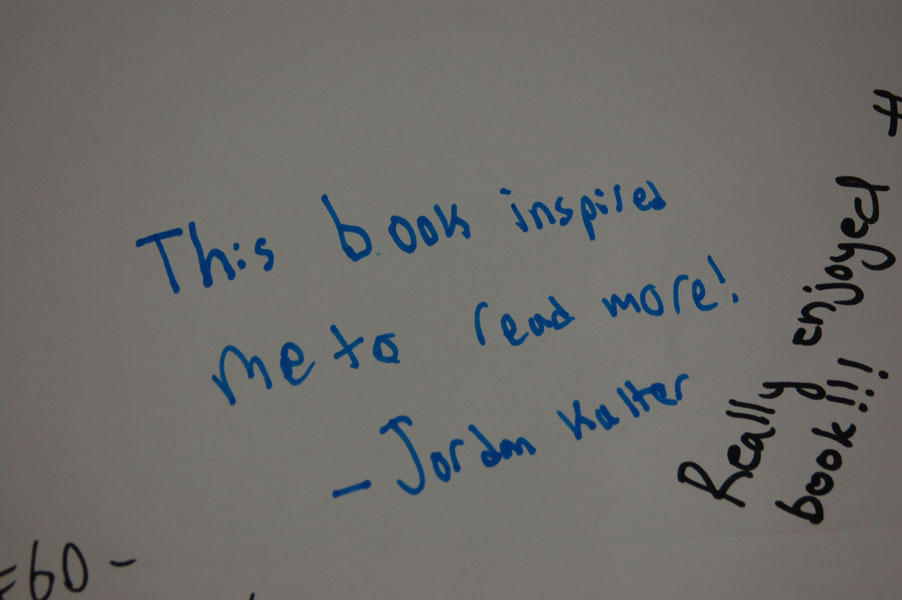 This book inspired
me to read more!
- Jordan Kalter
Really enjoyed
book!!!
=60-